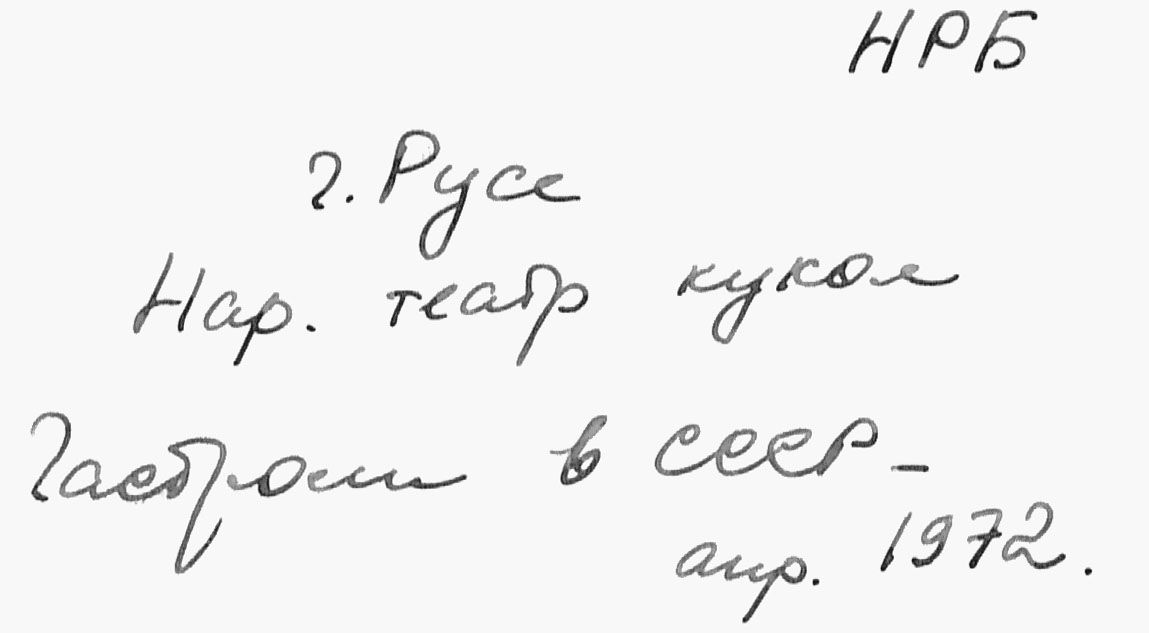 НРБ
г. Русе
Нар. театр кукол
Гастроли в СССР -
апр. 1972.